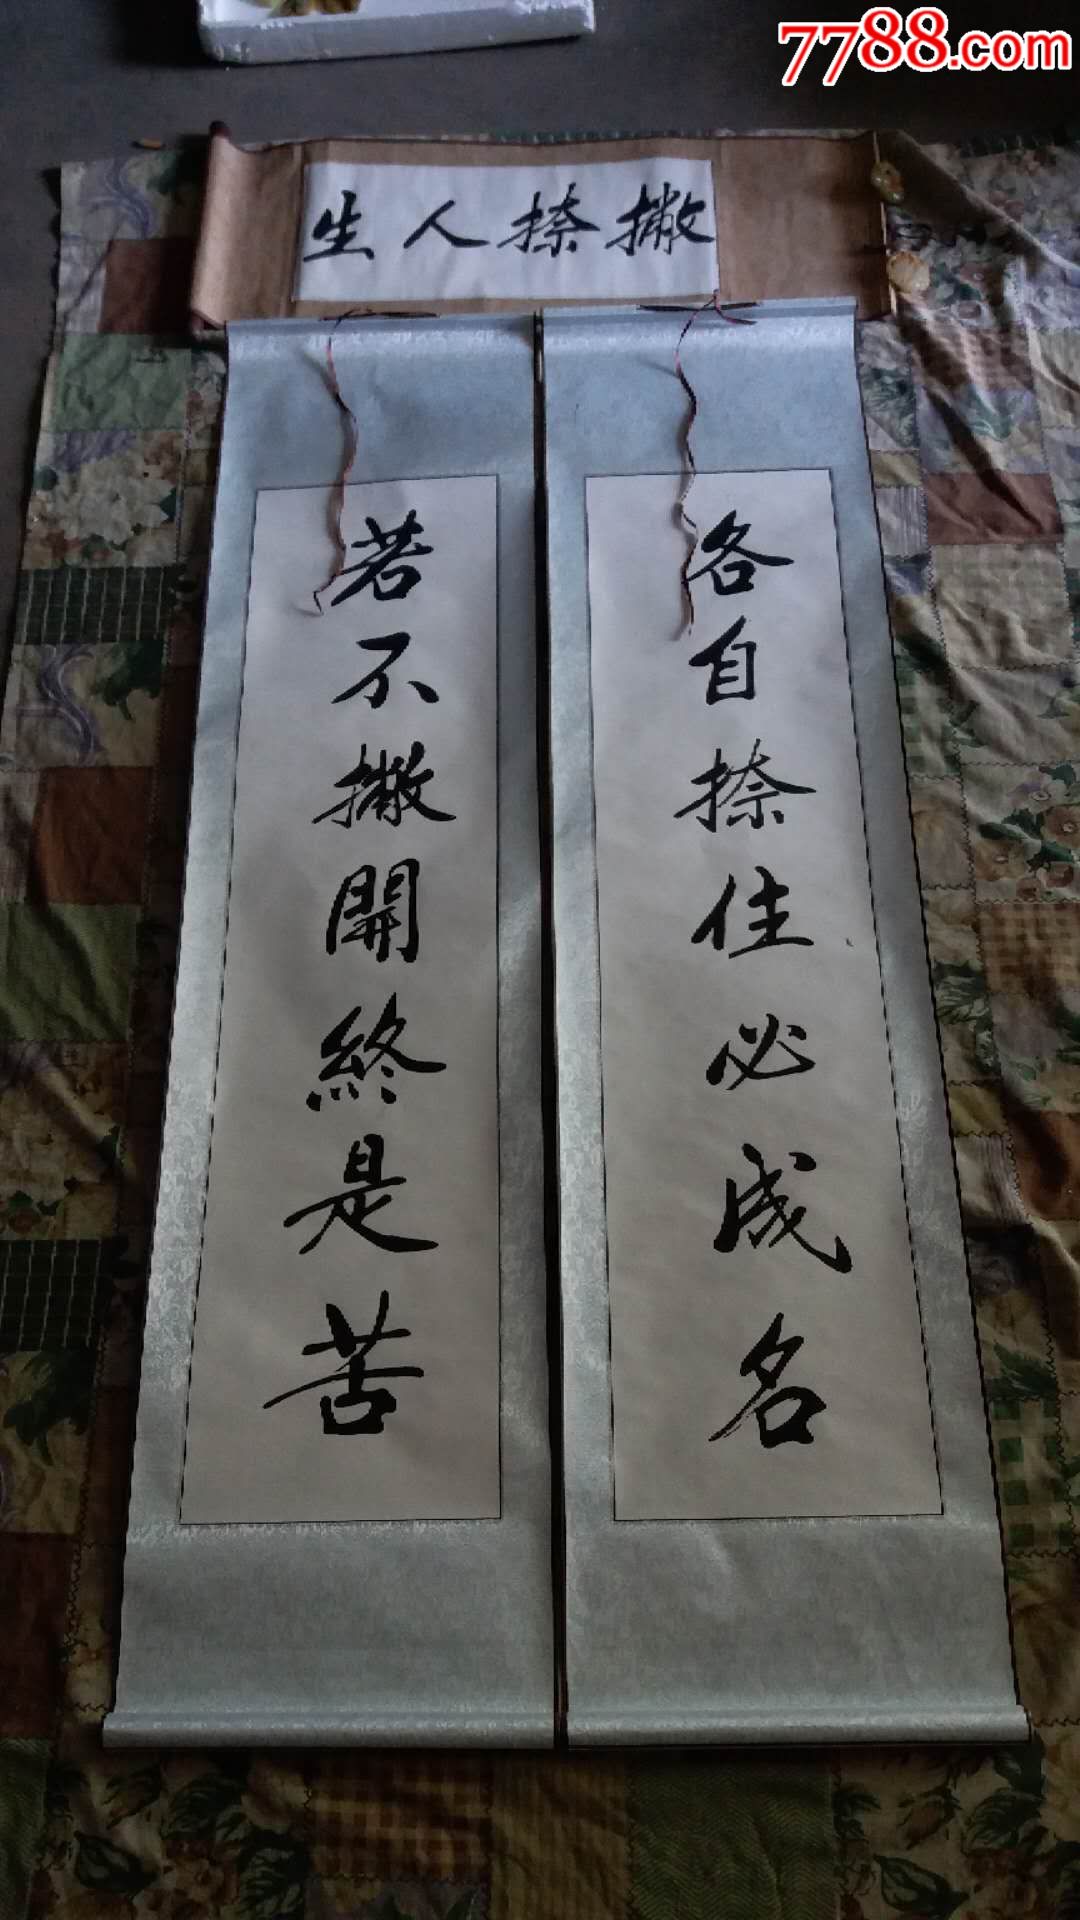 7788.com
撇捺人生
各自捺住必成名
若不撇開終是苦